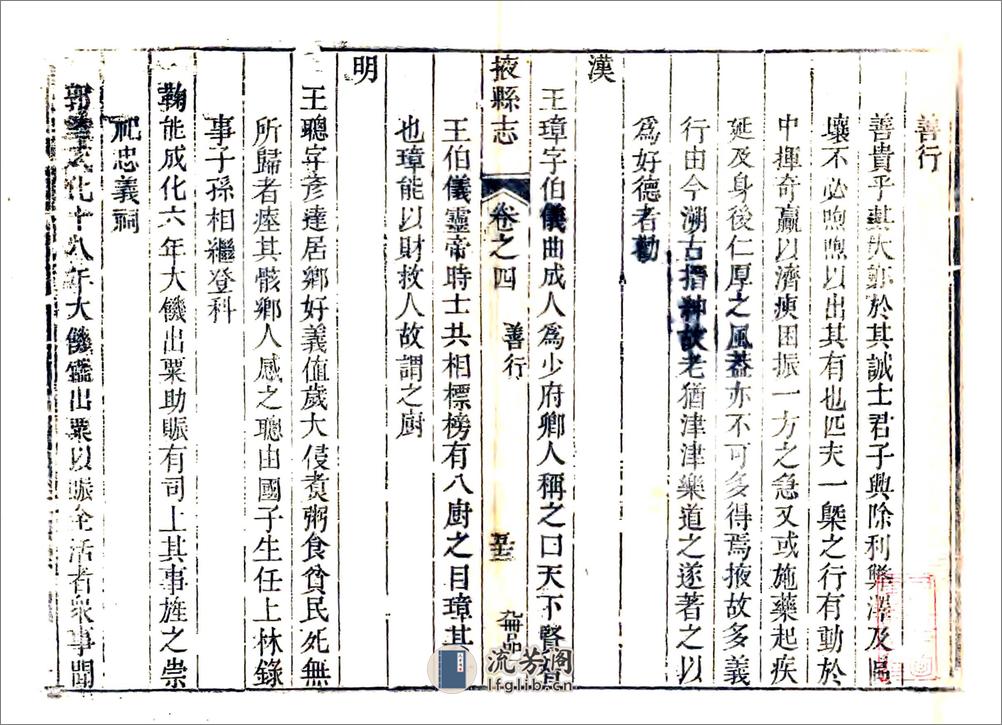 善行
善貴乎其大卽於其誠士君子興除利獘澤及
壤不必煦煦以出其有也匹夫一槩之行有動於
中揮奇贏以濟痍困振一方之急又或施藥起疾
延及身後仁厚之風葢亦不可多得焉掖故多義
行由今溯古搢紳故老猶津津樂道之遂著之以
爲好德者勸
漢
王璋字伯儀曲成人爲少府卿人稱之曰天下賢
王伯儀靈帝時士共相標榜有八廚之目璋其
也璋能以財救人故謂之廚
掖縣志 卷之四 善行
明
王聰字彥達居鄉好義值歲大侵煮粥食貧民死無
所歸者瘞其骸鄉人感之聰由國子生任上林錄
事子孫相繼登科
鞠能成化六年大饑出粟助賑有司上其事旌之崇
祀忠義祠
郭 化十八年大饑 出粟以賑全活者衆事聞
流芳阁
lfglib.cn